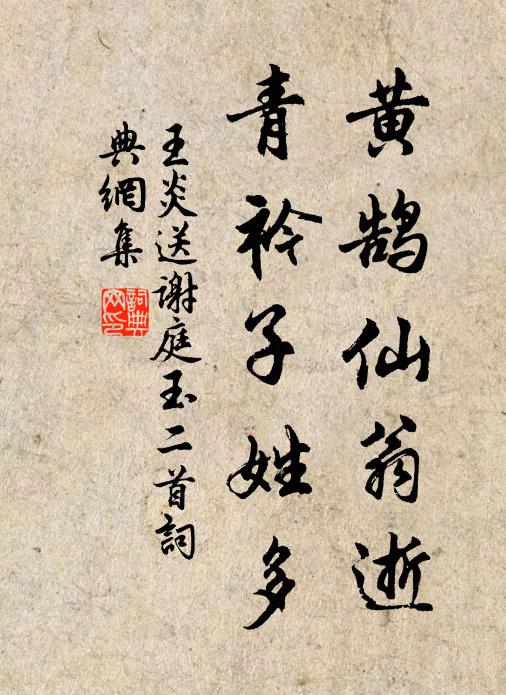 黄鹄仙翁逝
青衿子姓多
王炎送謝庭玉二首詞
典網集
詞典網印